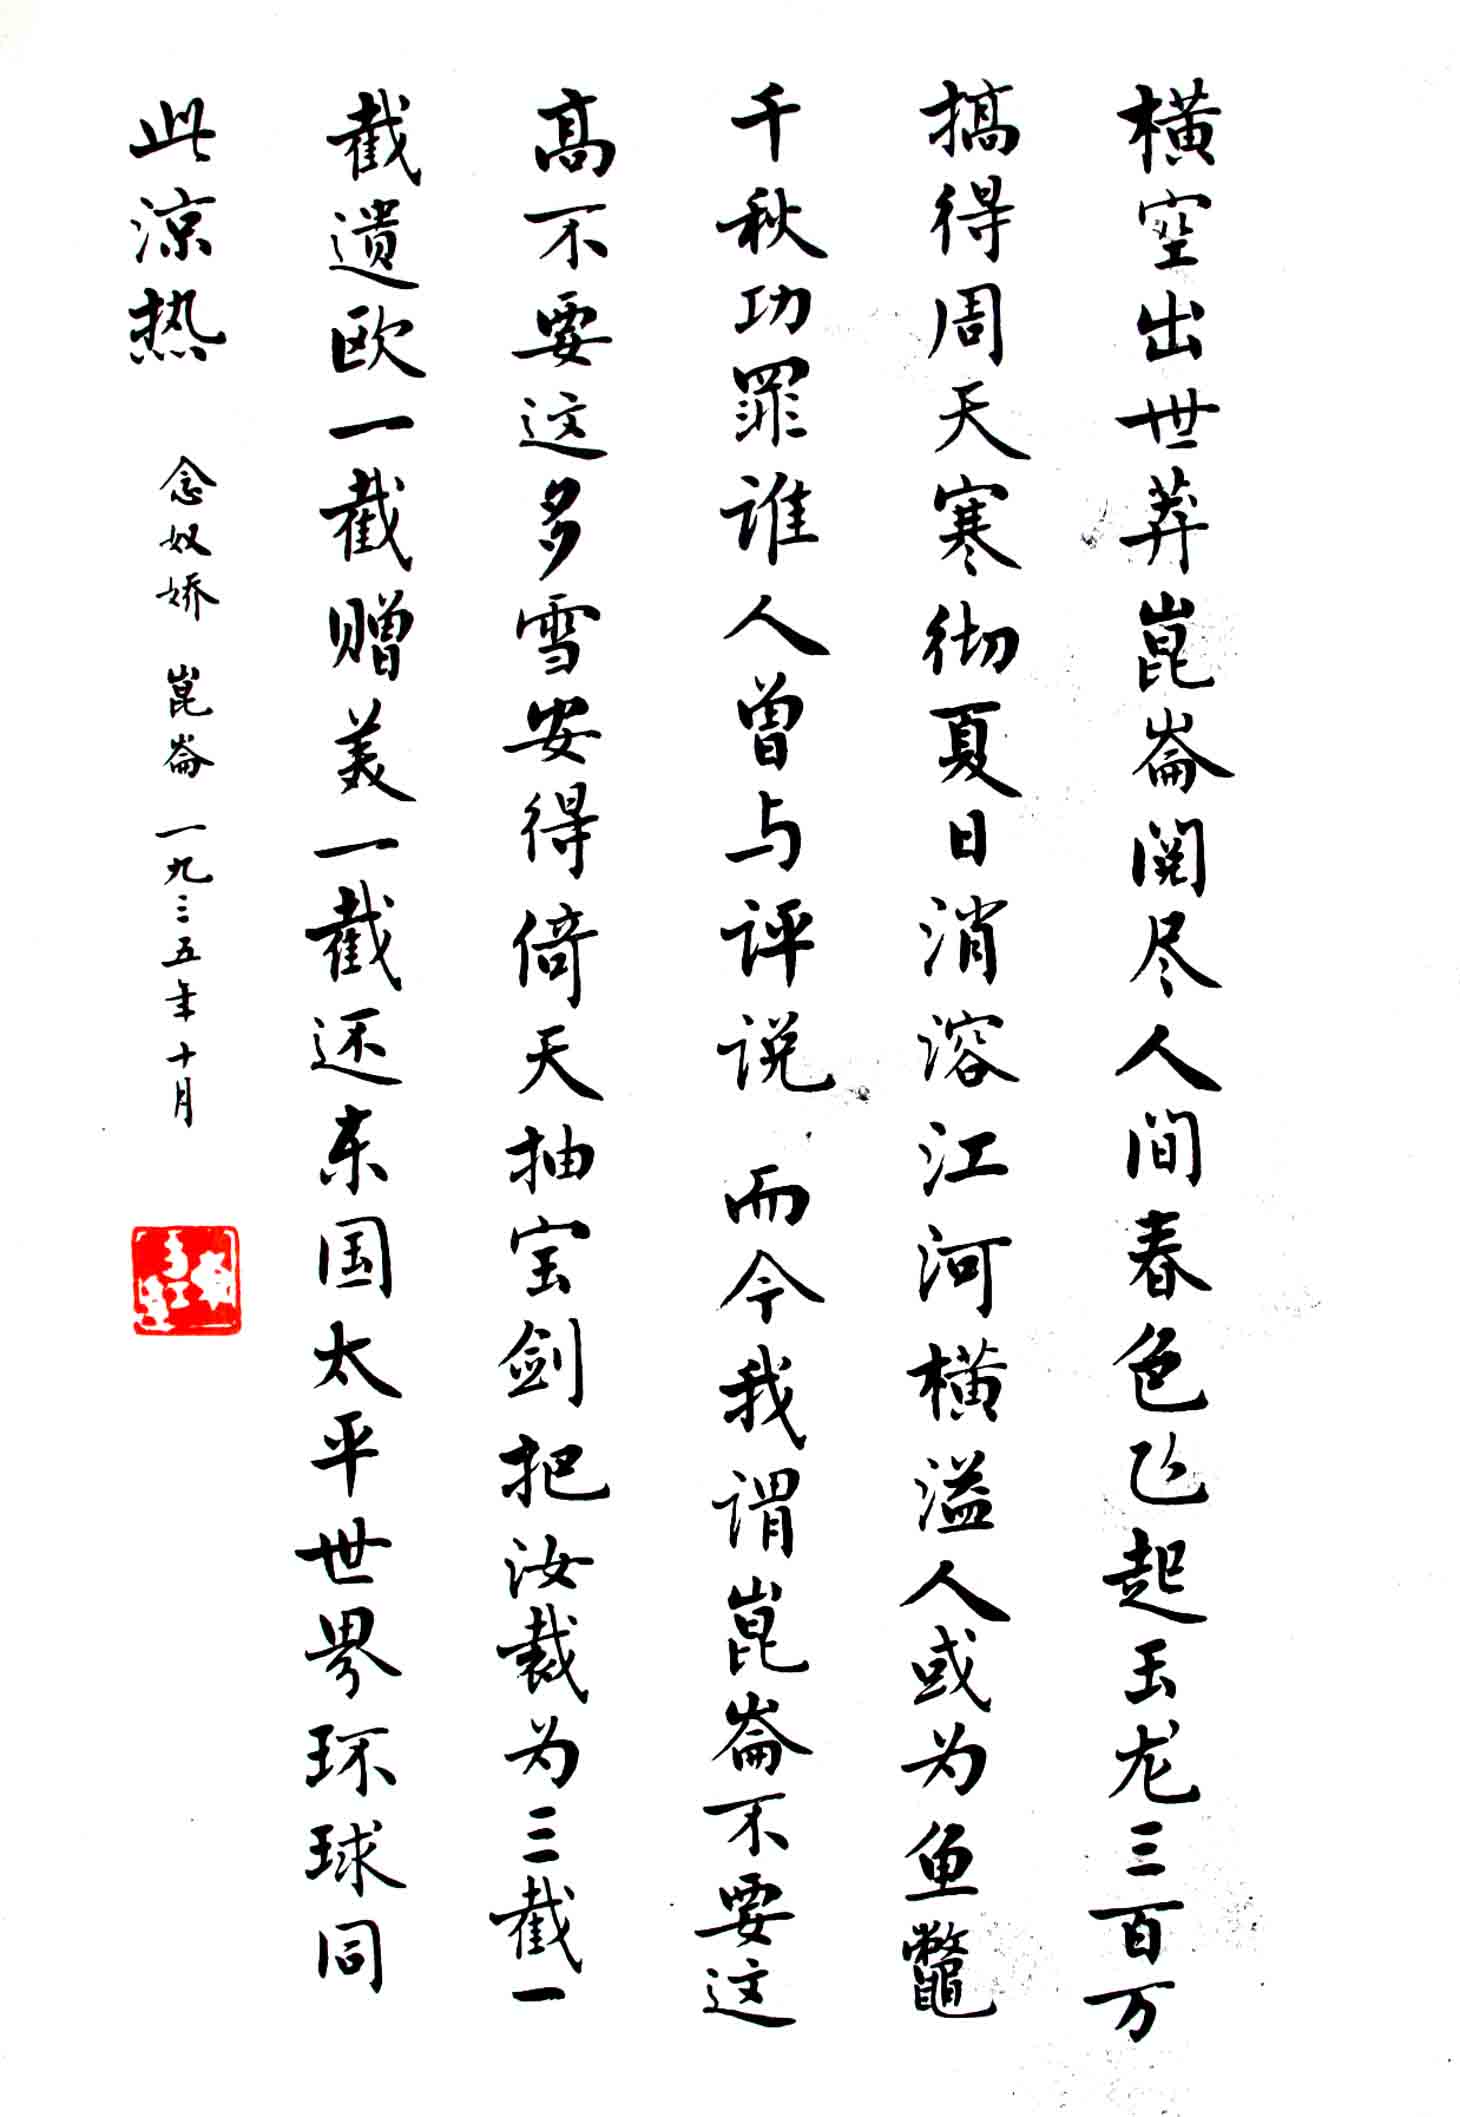 横空出世莽崑崙阅尽人间春色飞起玉龙三百万
搞得周天寒彻夏日消溶江河横溢人或为鱼鼈
千秋功罪谁人曾与评说 而今我谓崑崙不要这
高不要这多雪安得倚天抽宝剑把汝裁为三截一
截遗欧一截赠美一截还东国太平世界环球同
此涼热 念奴娇 崑崙 一九三五年十月